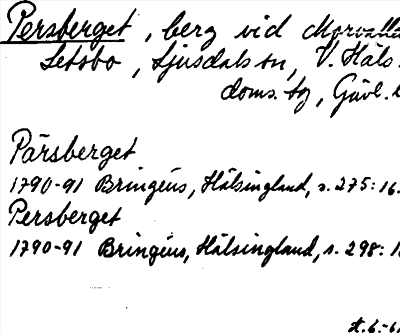 Persberget, berg vid Morvalla
Letsbo, Ljusdals sn, V. Häls.
doms. sg, Gävl. l
Pärsberget
1790-91 Bringéus, Hälsingland, s. 275: 16.
Persberget
1790-91 Bringéus, Hälsingland, s. 298: 1